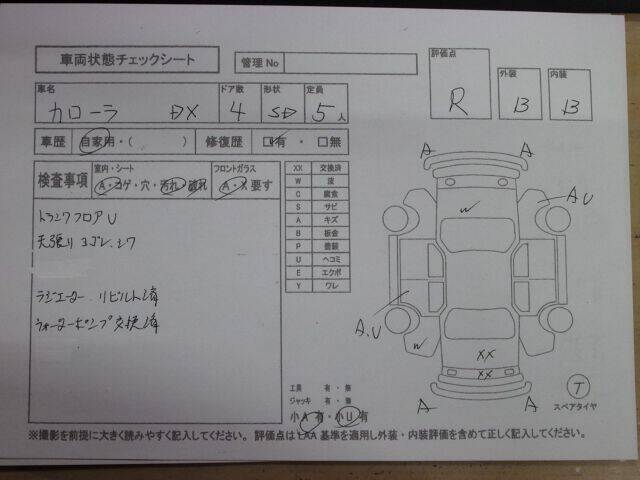 車両状態チェックシート
管理No
評価点
R
外装
B
内装
B
車名
カローラ DX
ドア数
4
形状
SD
定員
5人
車歴 自家用・( ) 修復歴 □有・□無
検査事項
室内・シート
A・コゲ・穴・汚れ・破れ
フロントガラス
A・X要す
トランクフロアU
天張りヨゴレ、シワ
ラジエーター リビルト済
ウォーターポンプ交換済
XX 交換済
W 波
C 腐食
S サビ
A キズ
B 板金
P 塗装
U ヘコミ
E エクボ
Y ワレ
A
A
A,U
W
A,U
W
XX
XX
A
A
T
スペアタイヤ
工具 有・無
ジャッキ 有・無
小A有・小U有
※撮影を前提に大きく読みやすく記入してください。 評価点はLAA基準を適用し外装・内装評価を含めて正しく記入してください。